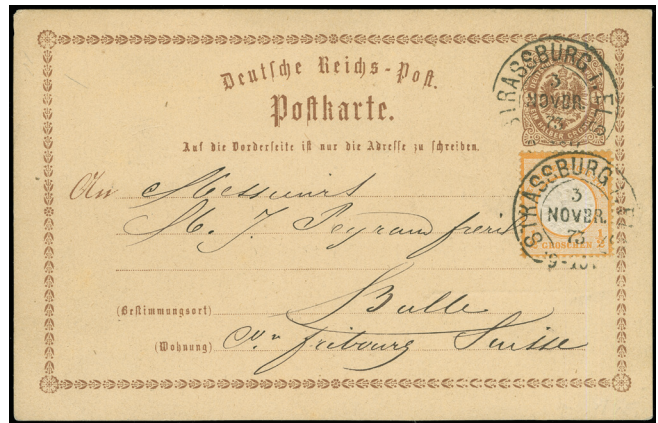 Deutsche Reichs-Post.
Postkarte.
Auf die Vorderseite ist nur die Adresse zu schreiben.
STRASSBURG i. Els
3
NOVBR.
73
STRASSBURG i. E
3
NOVBR.
73
9-10
GROSCHEN ½
An Messieurs
M. J. Peyraud frères
(Bestimmungsort) Bulle
(Wohnung) Cn Fribourg Suisse